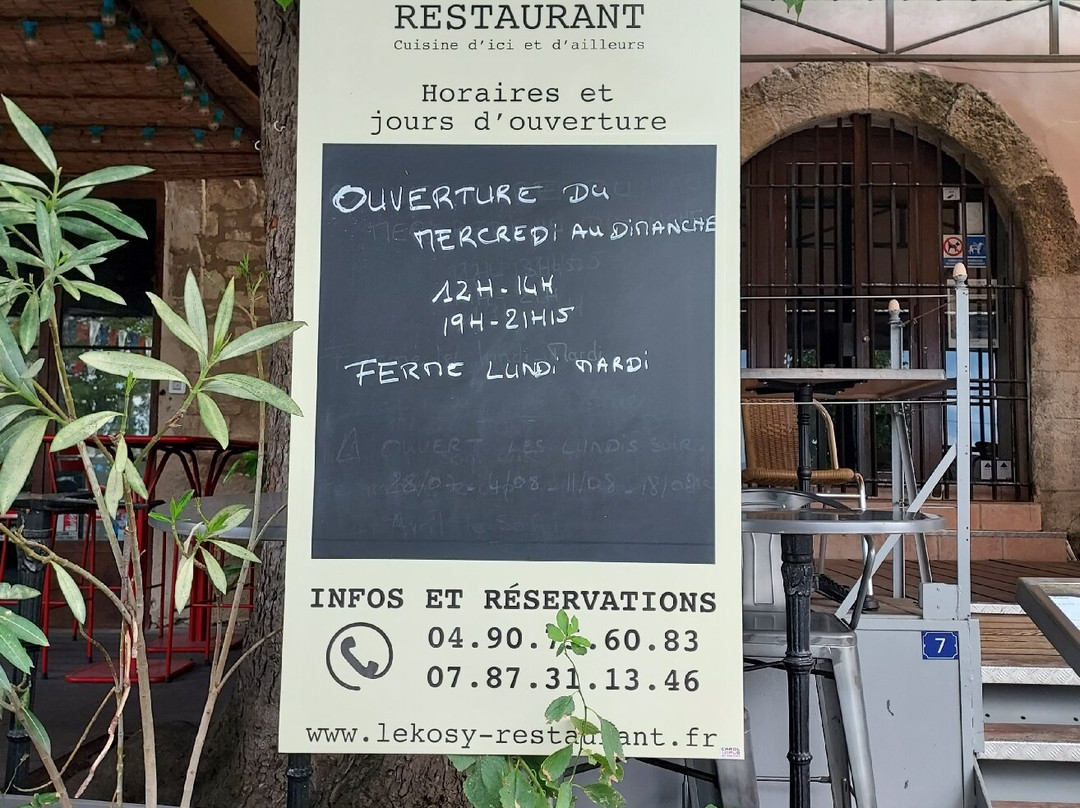 RESTAURANT
Cuisine d'ici et d'ailleurs
Horaires et
jours d'ouverture
OUVERTURE DU
MERCREDI AU DIMANCHE
12H-14H
19H-21H15
FERME LUNDI MARDI
OUVERT LES LUNDIS SOIR
4/08 - 11/08 - 18/08
INFOS ET RÉSERVATIONS
04.90. .60.83
07.87.31.13.46
www.lekosy-restaurant.fr
7